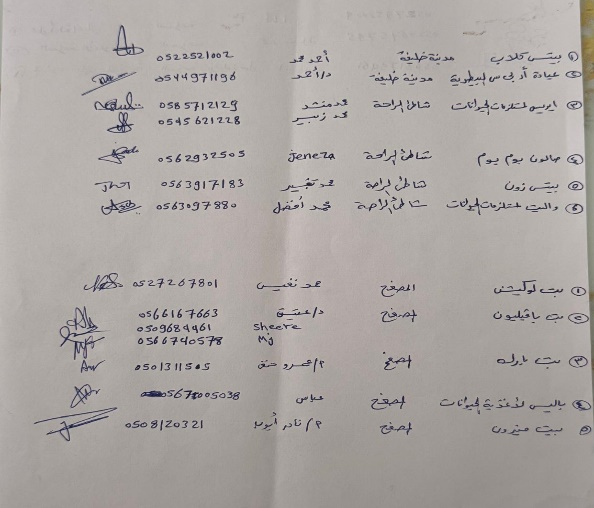 ① بيتس كلاب مدينة خليفة أحمد محمد 0522521002
② عيادة أر بي س البيطرية مدينة خليفة د/أحمد 0544971196
③ ايريس لمستلزمات الحيوانات شاطئ الراحة محمد منشد 0585712129
محمد زبير 0545621228
④ صالون بوم بوم شاطئ الراحة Jeneza 0562932505
⑤ بيتس زون شاطئ الراحة محمد 0563917183
⑥ واليت لمستلزمات الحيوانات شاطئ الراحة محمد أفضل 0563097880
① بيت لوكيشن المصفح محمد نفيس 0527267801
② بت بافيليون المصفح د/عتيق 0566167663
Sheere 0509684461
Mj 0566740578
③ بيت بارك المصفح م/عمرو حنفى 0501311505
④ باليس لأغذية الحيوانات المصفح عباس 0567005038
⑤ بيت المصفح م/نادر أيوب 0508120321